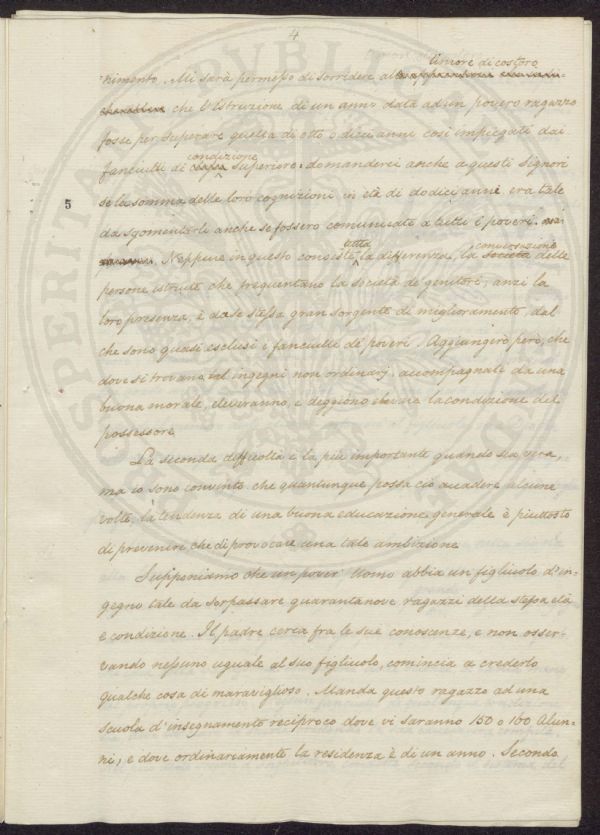 4
timore di costoro
nimento. Mi sarà permesso di sorridere al
che l'Istruzione di un anno data ad un povero ragazzo
fosse per superare quella di otto o dieci anni così impiegati dai
condizione
fanciulli di classe superiore: domanderei anche a questi Signori
se la somma delle loro cognizioni in età di dodici anni era tale
5
da sgomentarli anche se fossero comunicate a tutti i poveri.
tutta conversazione
Neppure in questo consiste la differenza, la società delle
persone istruite che frequentano la società de' genitori, anzi la
loro presenza, è da se stessa gran sorgente di miglioramento, dal
che sono quasi esclusi i fanciulli de' poveri. Aggiungerò però, che
dove si trovano tal ingegni non ordinarj, accompagnati da una
buona morale, eleveranno, e deggiono elevare la condizione del
possessore
La seconda difficoltà è la più importante quando sia vera,
ma io sono convinto che quantunque possa ciò accadere alcune
volte, la tendenza di una buona educazione generale è piuttosto
di prevenire che di provocare una tale ambizione
Supponiamo che un pover' Uomo abbia un figliuolo d'in-
gegno tale da sorpassare quarantanove ragazzi della stessa età
e condizione. Il padre cerca fra le sue conoscenze, e non osser-
vando nessuno uguale al suo figliuolo, comincia a crederlo
qualche cosa di maraviglioso. Manda questo ragazzo ad una
scuola d'insegnamento reciproco dove vi saranno 150 o 160 Alun-
ni, e dove ordinariamente la residenza è di un anno. Secondo